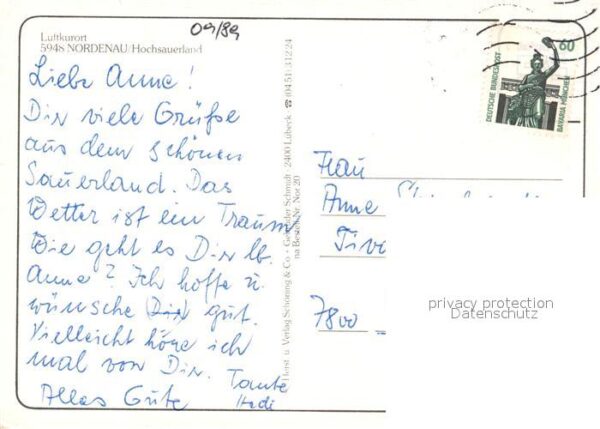 09/89
Luftkurort
5948 NORDENAU/Hochsauerland
Liebe Anne!
Dir viele Grüße
aus dem schönen
Sauerland. Das
Wetter ist ein Traum
Wie geht es Dir lb.
Anne? Ich hoffe u.
wünsche (Dir) gut.
Vielleicht höre ich
mal von Dir. Tante
Alles Gute Hedi
Horst u. Verlag Schöning & Co · Gebrüder Schmidt · 2400 Lübeck ☎ (0451) 31224
na Bestell-Nr. Nor 20
60
DEUTSCHE BUNDESPOST
BAVARIA MÜNCHEN
Frau
Anne
7800
privacy protection
Datenschutz